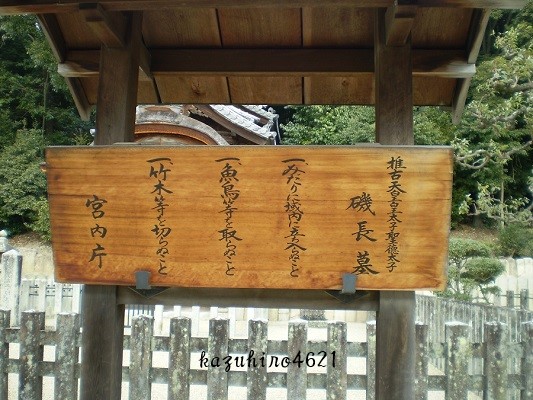 推古天皇皇太子聖徳太子
磯長墓
一、みだりに域内に立ち入らぬこと
一、魚鳥等を取らぬこと
一、竹木等を切らぬこと
宮内庁
kazuhiro4621